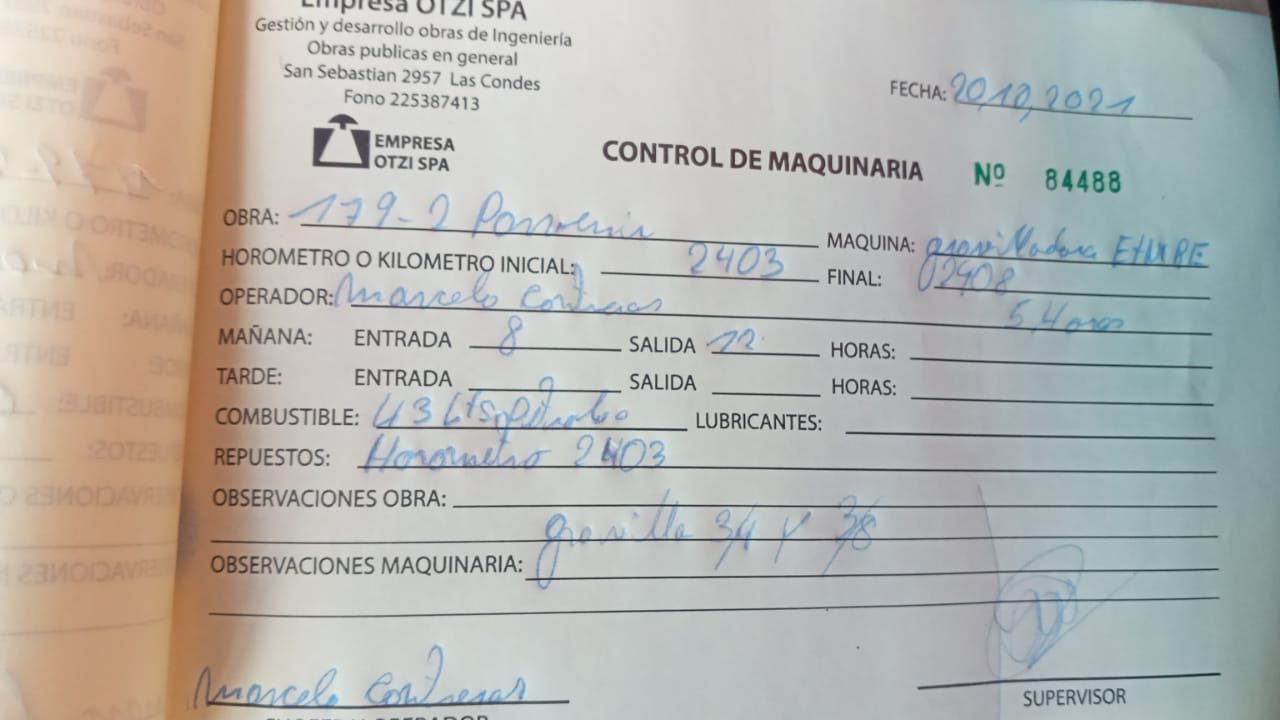 Empresa OTZI SPA
Gestión y desarrollo obras de Ingeniería
Obras publicas en general
San Sebastian 2957 Las Condes
Fono 225387413
EMPRESA
OTZI SPA
FECHA: 20,10,2021
CONTROL DE MAQUINARIA Nº 84488
OBRA: 179-2 Porvenir MAQUINA: gravilladora
HOROMETRO O KILOMETRO INICIAL: 2403 FINAL: 02408
OPERADOR: Marcelo Contreras 5,4 oras
MAÑANA: ENTRADA 8 SALIDA 12 HORAS:
TARDE: ENTRADA SALIDA HORAS:
COMBUSTIBLE: 43 Lts LUBRICANTES:
REPUESTOS: Horometro 2403
OBSERVACIONES OBRA:
gravilla 3/4 y 3/8
OBSERVACIONES MAQUINARIA:
Marcelo Contreras
SUPERVISOR